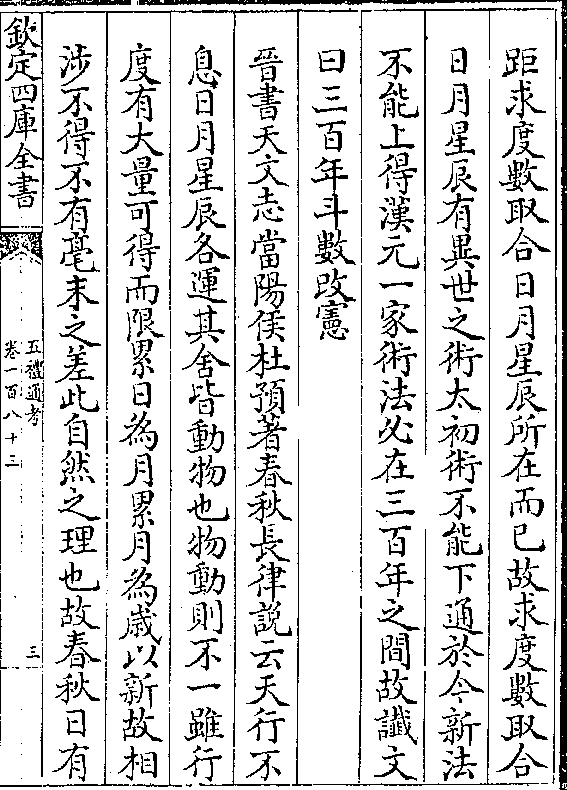 距求度數取合日月星辰所在而已故求度數取合
日月星辰有異世之術太初術不能下通於今新法
不能上得漢元一家術法必在三百年之間故讖文
曰三百年斗數改憲
晉書天文志當陽侯杜預著春秋長律說云天行不
息日月星辰各運其舍皆動物也物動則不一雖行
度有大量可得而限累日為月累月為歲以新故相
涉不得不有毫末之差此自然之理也故春秋日有
欽定四庫全書
五禮通考
卷一百八十三
三